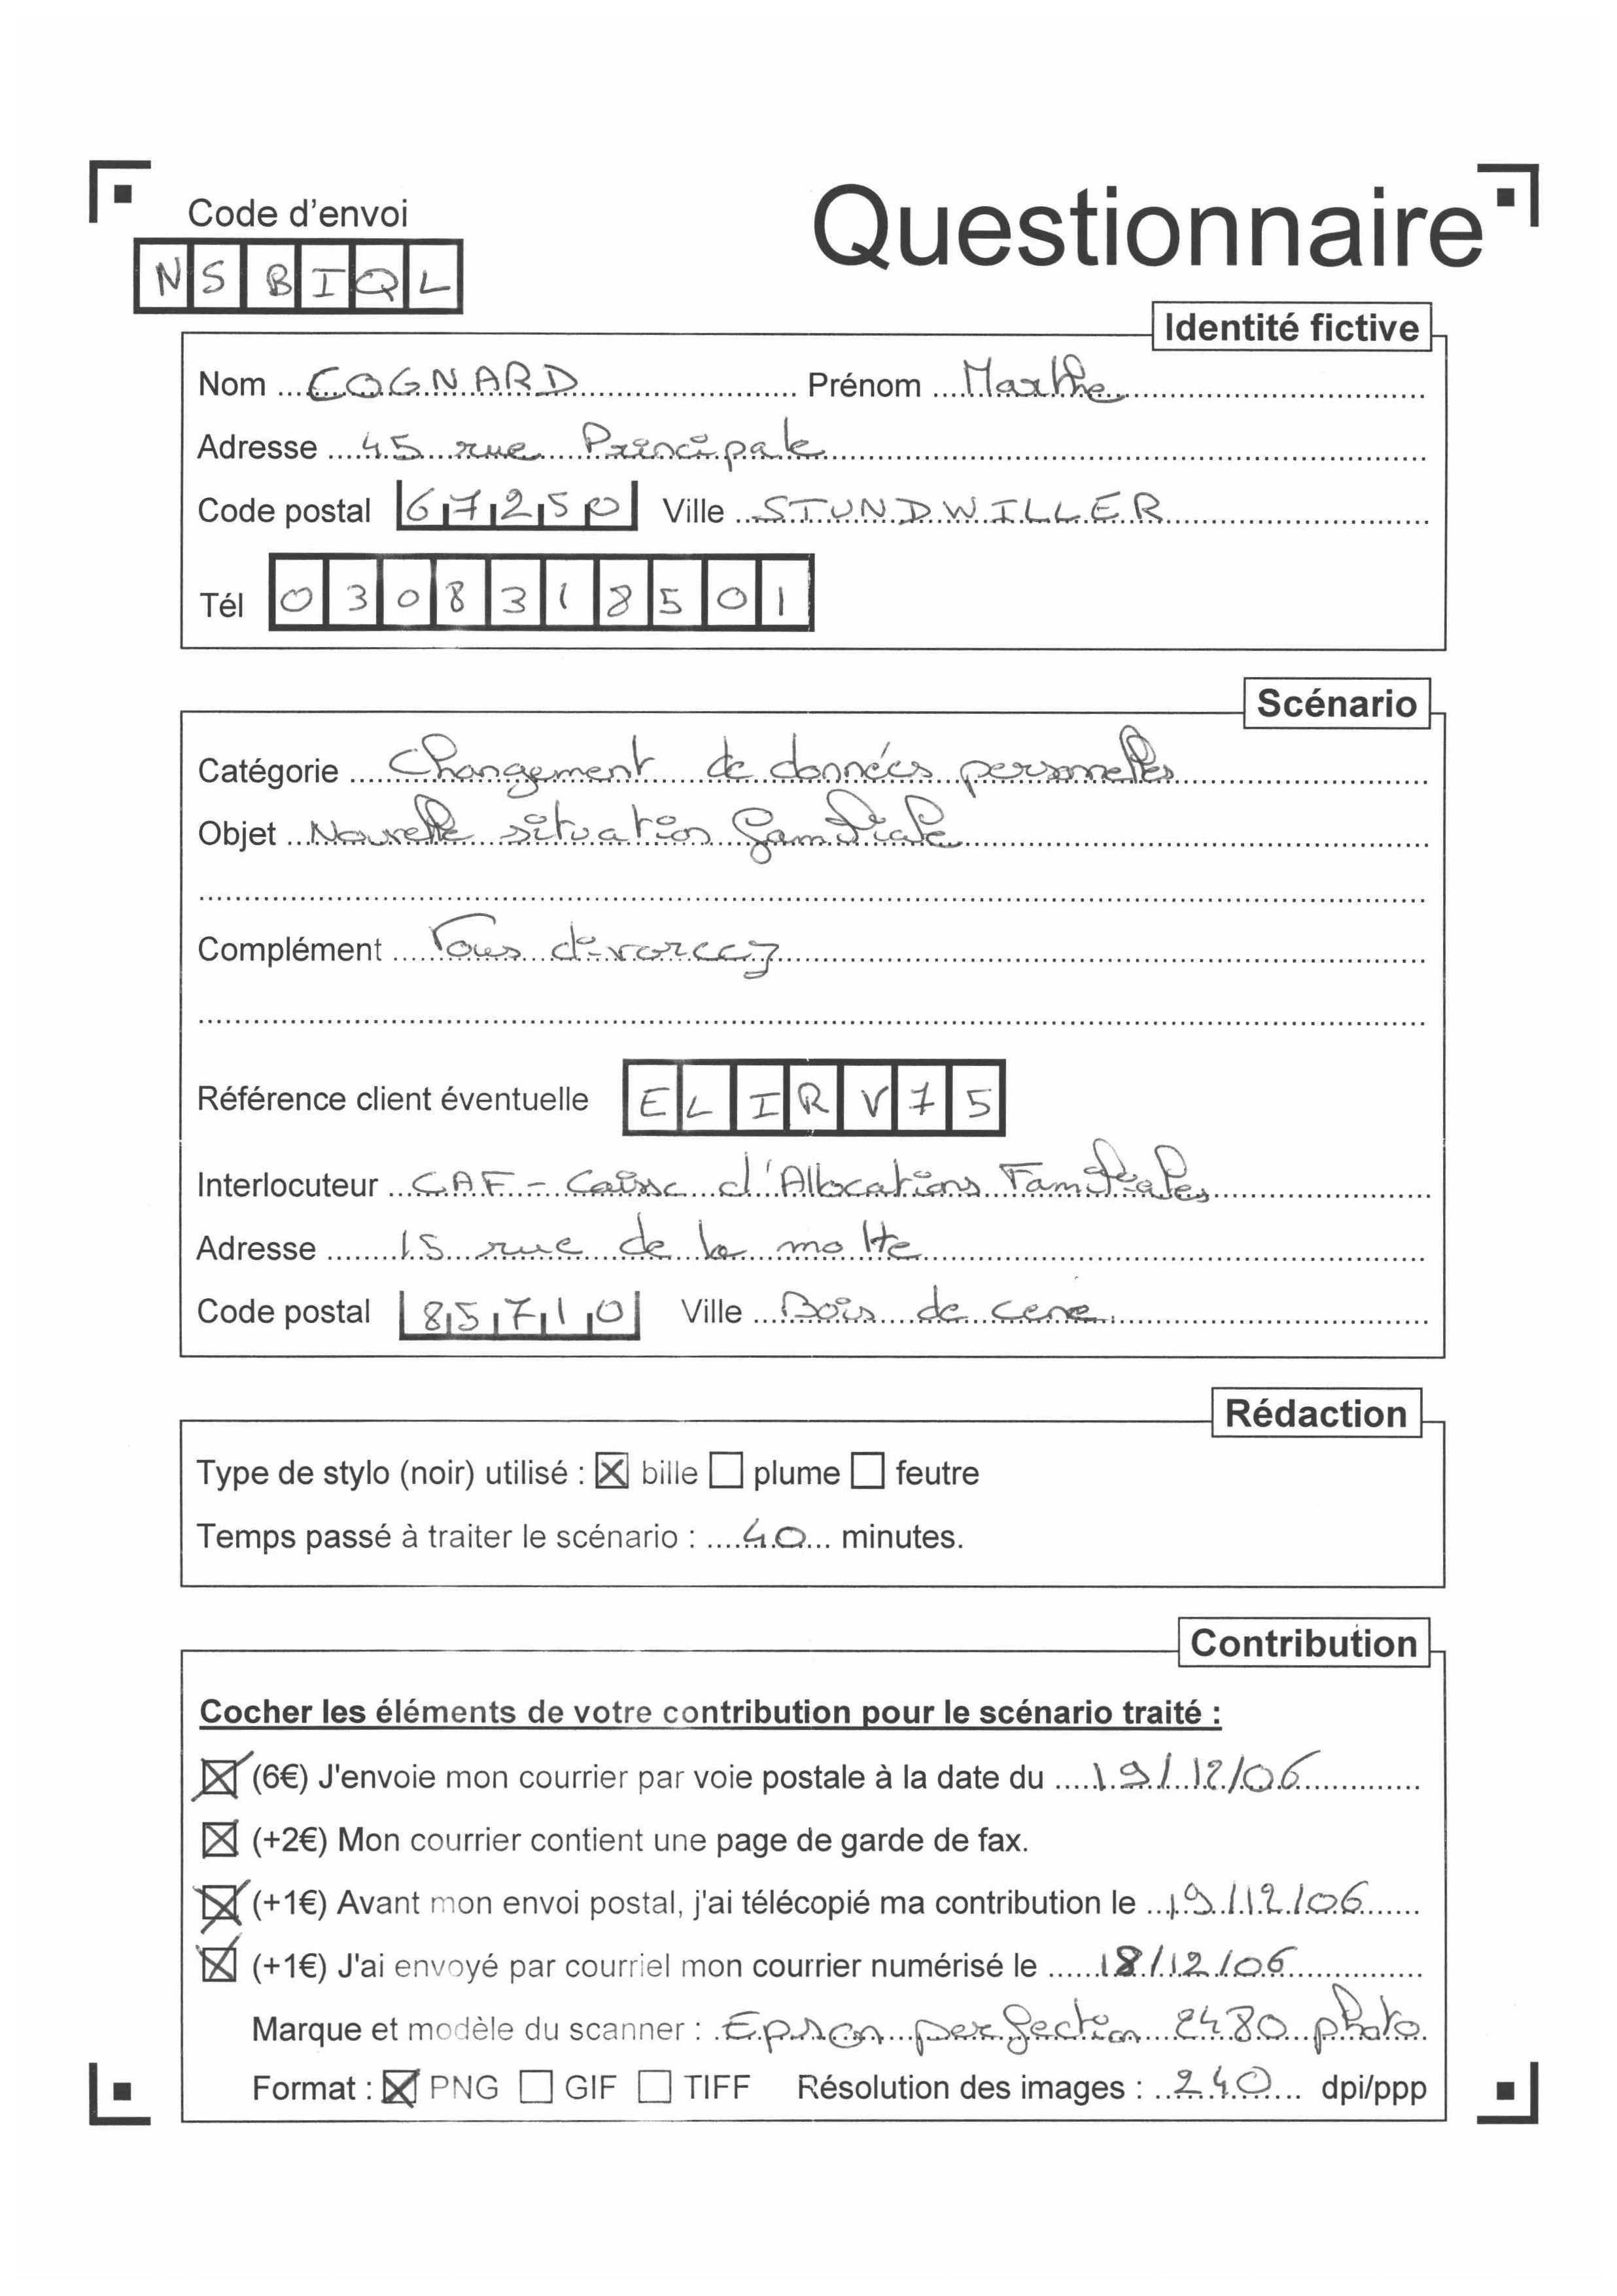 Code d'envoi
Questionnaire
NSBIQL
Identité fictive
Nom COGNARD Prénom Marthe
Adresse 45 rue Principale
Code postal 67250 Ville STUNDWILLER
Tél 0308318501
Scénario
Catégorie Changement de données personnelles
Objet Nouvelle situation familiale
Complément Vous divorcez
Référence client éventuelle ELIRV75
Interlocuteur CAF - Caisse d'Allocations Familiales
Adresse 15 rue de la motte
Code postal 85710 Ville Bois de cene
Rédaction
Type de stylo (noir) utilisé : ☒ bille ☐ plume ☐ feutre
Temps passé à traiter le scénario : 40 minutes.
Contribution
Cocher les éléments de votre contribution pour le scénario traité :
☒ (6€) J'envoie mon courrier par voie postale à la date du 19/12/06
☒ (+2€) Mon courrier contient une page de garde de fax.
☒ (+1€) Avant mon envoi postal, j'ai télécopié ma contribution le 19/12/06
☒ (+1€) J'ai envoyé par courriel mon courrier numérisé le 18/12/06
Marque et modèle du scanner : Epson perfection 2480 photo
Format : ☒ PNG ☐ GIF ☐ TIFF Résolution des images : 240 dpi/ppp